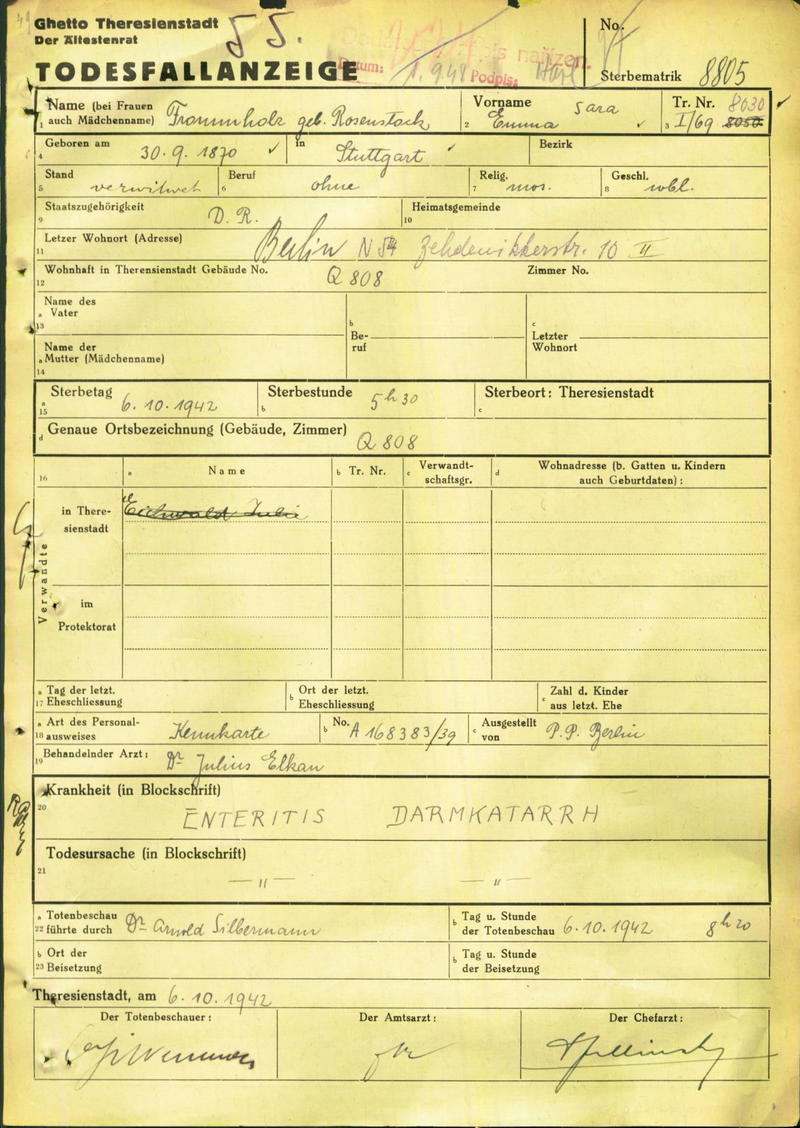 Ghetto Theresienstadt
Der Ältestenrat
55.
No.
Datum: 1. 943 Podpis:
TODESFALLANZEIGE
Sterbematrik 8805
Name (bei Frauen auch Mädchenname) Frommholz geb. Rosenstock
Vorname Emma Sara
Tr. Nr. 8030
1 2 3 I/69 8050
Geboren am 30. 9. 1870 in Stuttgart Bezirk
4
Stand verwitwet Beruf ohne Relig. mos. Geschl. wbl.
5 6 7 8
Staatszugehörigkeit D. R. Heimatsgemeinde
9 10
Letzer Wohnort (Adresse) Berlin N 54 Zehdenikkerstr. 10 II
11
Wohnhaft in Theresienstadt Gebäude No. Q 808 Zimmer No.
12
Name des
a Vater
13
b Beruf
c Letzter Wohnort
Name der
a Mutter (Mädchenname)
14
Sterbetag 6. 10. 1942 Sterbestunde 5 h 30 Sterbeort: Theresienstadt
a 15 b c
d Genaue Ortsbezeichnung (Gebäude, Zimmer) Q 808
16 a Name b Tr. Nr. c Verwandt-schaftsgr. d Wohnadresse (b. Gatten u. Kindern auch Geburtdaten) :
Verwandte
in There-sienstadt Eichwald Julie
im Protektorat
a Tag der letzt.
17 Eheschliessung
b Ort der letzt. Eheschliessung
c Zahl d. Kinder aus letzt. Ehe
a Art des Personal-
18 ausweises Kennkarte b No. A 168383/39 c Ausgestellt von P. P. Berlin
19 Behandelnder Arzt: Dr Julius Elkan
Krankheit (in Blockschrift)
20 ENTERITIS DARMKATARRH
Todesursache (in Blockschrift)
21 — " — — " —
a Totenbeschau
22 führte durch Dr Arnold Silbermann b Tag u. Stunde der Totenbeschau 6. 10. 1942 8 h 20
b Ort der
23 Beisetzung
b Tag u. Stunde der Beisetzung
Theresienstadt, am 6. 10. 1942
Der Totenbeschauer: Der Amtsarzt: Der Chefarzt: